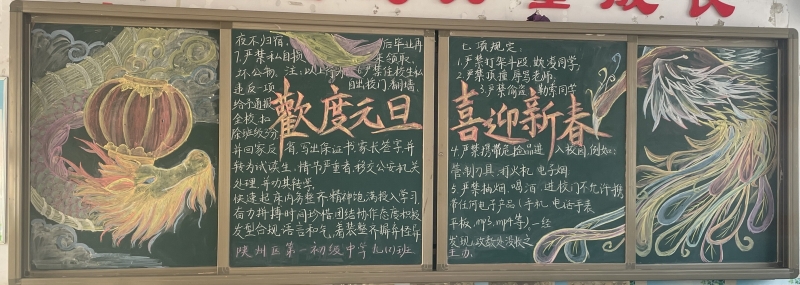 成长
夜不归宿,
后毕业再
7.严禁私自损
来领取.
坏公物. 注:以上行为
6.严禁住校生私
违反一项
自出校门,翻墙,
给予通报
全校,扣
除班级3分
歡度元旦
并回家反省,写出保证书家长签字,并
转为试读生,情节严重者,移交公安机关
处理,并劝其转学.
快速起床内务整齐,精神饱满投入学习,
奋力拼搏时间珍惜团结协作态度积极
发型合规语言和气,着装整齐
陕州区第一初级中学九(1)班
七项规定:
1.严禁打架斗殴,欺凌同学,
2.严禁顶撞辱骂老师,
3.严禁偷盗、勒索同学
喜迎新春
4.严禁携带危险品进入校园,例如:
管制刀具 打火机 电子烟
5.严禁抽烟、喝酒,进校门不允许携
带任何电子产品(手机、电话手表
平板、mp3、mp4等),一经
发现